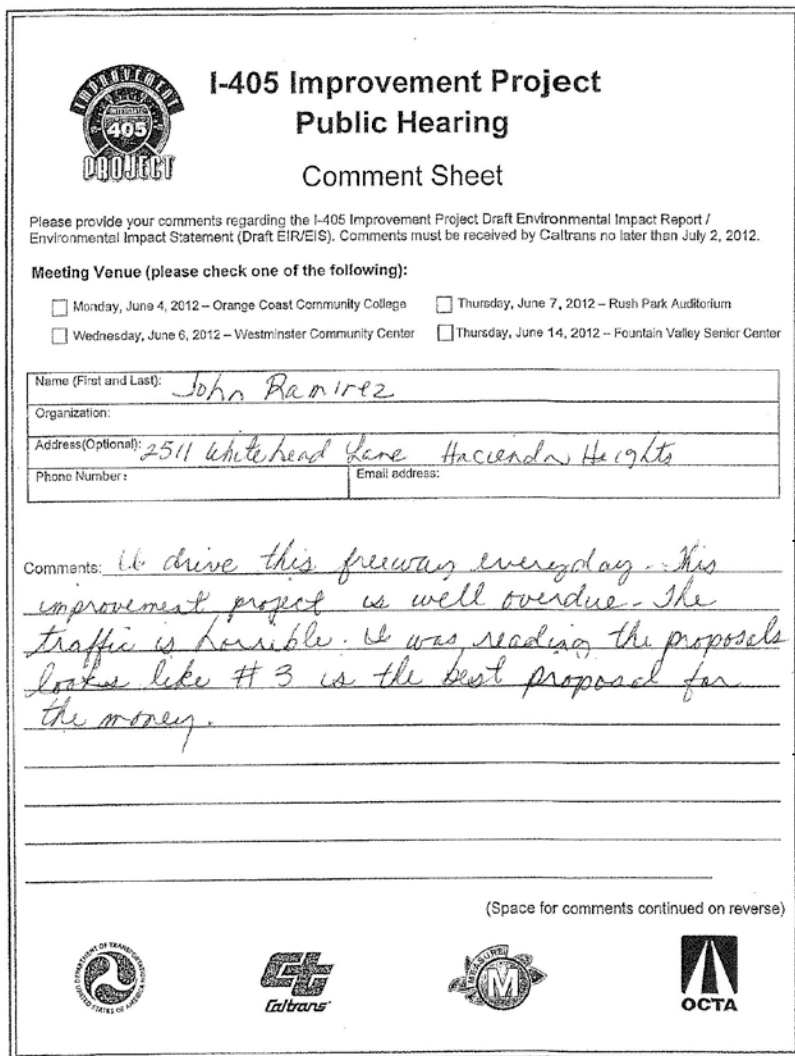 IMPROVEMENT
INTERSTATE
405
PROJECT
I-405 Improvement Project
Public Hearing
Comment Sheet
Please provide your comments regarding the I-405 Improvement Project Draft Environmental Impact Report /
Environmental Impact Statement (Draft EIR/EIS). Comments must be received by Caltrans no later than July 2, 2012.
Meeting Venue (please check one of the following):
Monday, June 4, 2012 – Orange Coast Community College
Thursday, June 7, 2012 – Rush Park Auditorium
Wednesday, June 6, 2012 – Westminster Community Center
Thursday, June 14, 2012 – Fountain Valley Senior Center
Name (First and Last): John Ramirez
Organization:
Address(Optional): 2511 Whitehead Lane Hacienda Heights
Phone Number:
Email address:
Comments: I drive this freeway everyday. This
improvement project is well overdue. The
traffic is horrible. I was reading the proposals
looks like #3 is the best proposal for
the money.
(Space for comments continued on reverse)
DEPARTMENT OF TRANSPORTATION
UNITED STATES OF AMERICA
Caltrans
MEASURE
M
OCTA